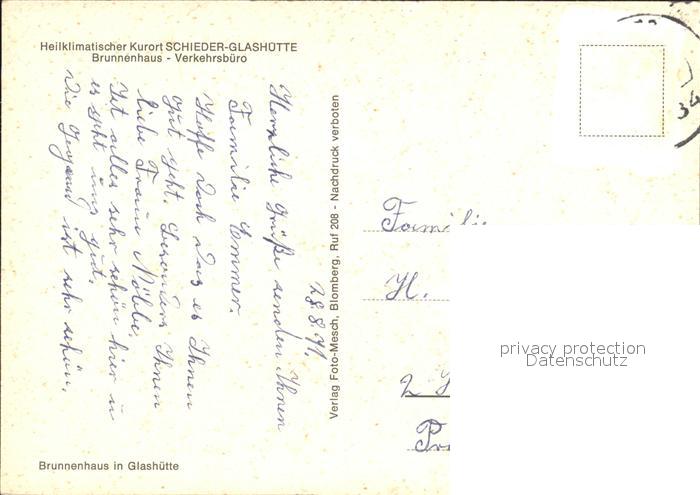 Heilklimatischer Kurort SCHIEDER-GLASHÜTTE
Brunnenhaus - Verkehrsbüro
28.8.71.
Herzliche Grüße senden Ihnen
Familie Emmer.
Hoffe doch das es Ihnen
Gut geht. besonders Ihnen
liebe Fraun Nölbe.
Ist alles sehr schön hier u
es geht uns gut.
Die Gegend ist sehr schön.
Brunnenhaus in Glashütte
Verlag Foto-Mesch, Blomberg, Ruf 208 - Nachdruck verboten
34
Famili
H.
2
privacy protection
Datenschutz